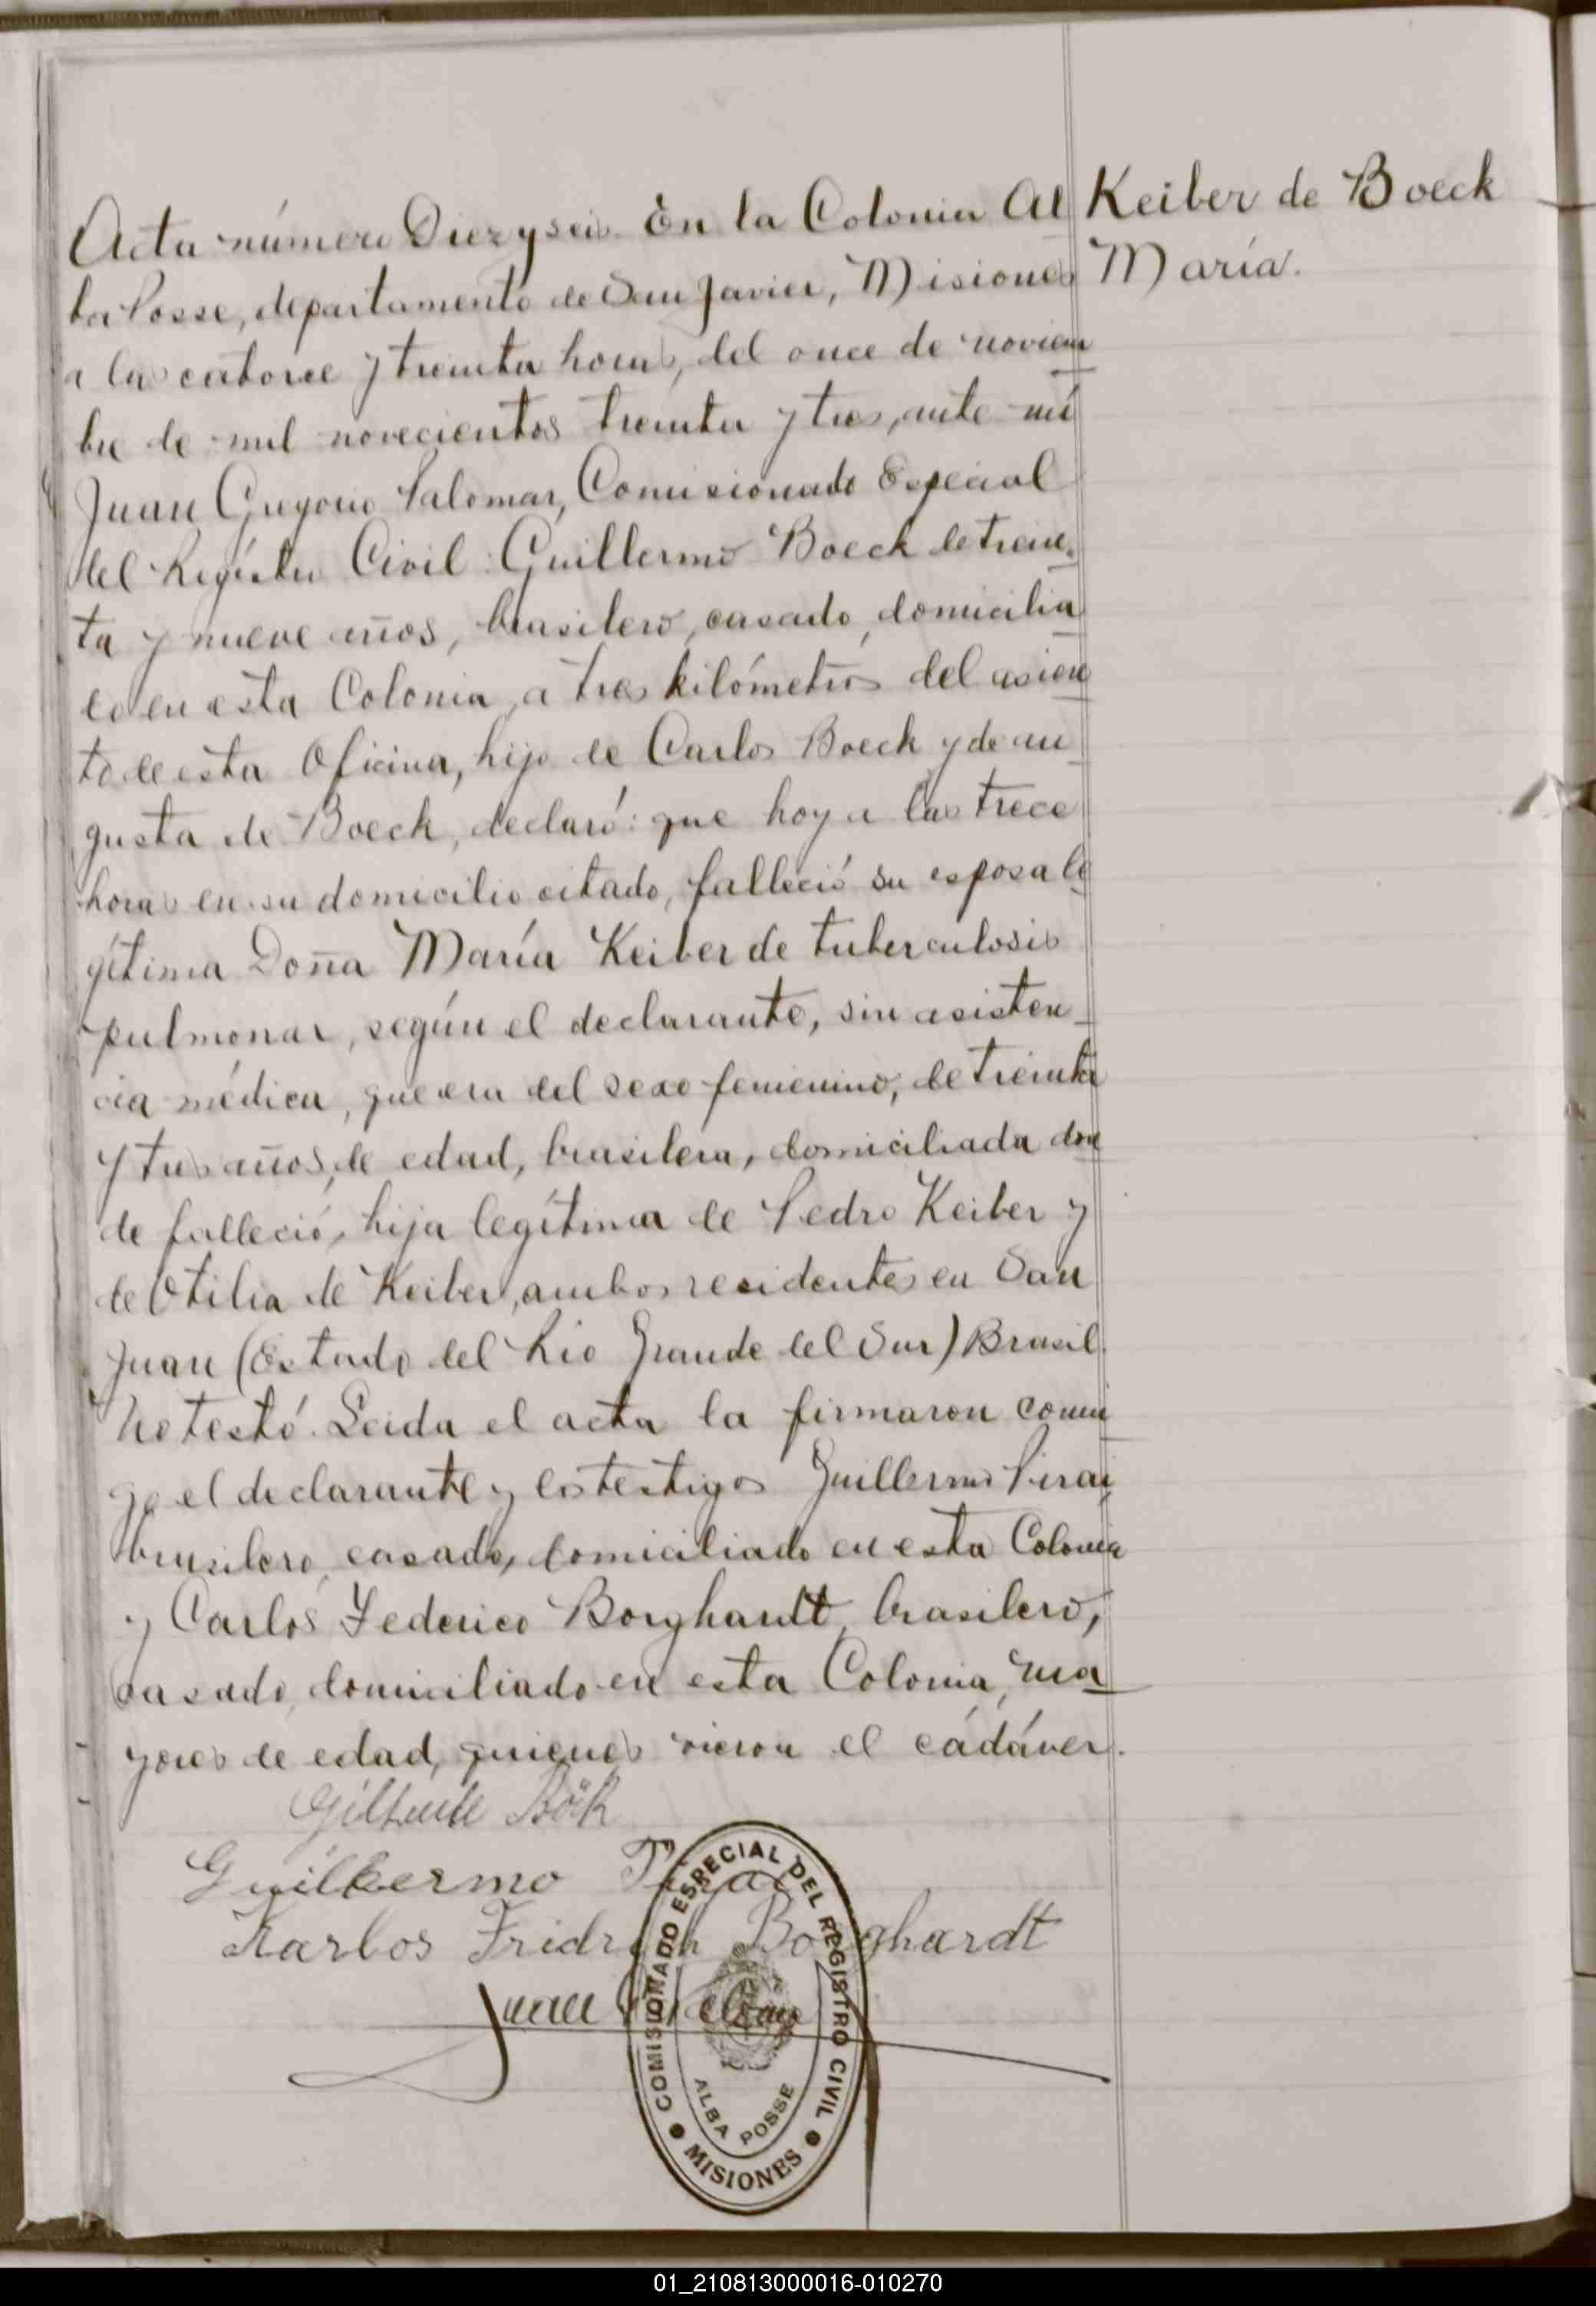 Keiber de Boeck
María.
Acta número Diez y seis. En la Colonia Al
ba Posse, departamento de San Javier, Misiones
a las catorce y treinta horas, del once de noviem
bre de mil novecientos treinta y tres, ante mí
Juan Gregorio Palomar, Comisionado Especial
del Registro Civil: Guillermo Boeck de trein_
ta y nueve años, brasilero, casado, domicilia
do en esta Colonia, a tres kilómetros del asien
to de esta Oficina, hijo de Carlos Boeck y de au
gusta de Boeck, declaró: que hoy a las trece
horas en su domicilio citado, falleció su esposa le
gítima Doña María Keiber de tuberculosis
pulmonar, según el declarante, sin asisten_
cia médica, que era del sexo femenino, de treinta
y tres años, de edad, brasilera, domiciliada don
de falleció, hija legítima de Pedro Keiber y
de Otilia de Keiber, ambos residentes en San
Juan (Estado del Rio Grande del Sur) Brasil.
No testó. Leida el acta la firmaron conmi
go el declarante y los testigos Guillermo Pirai
brasilero, casado, domiciliado en esta Colonia
y Carlos Federico Borghardt, brasilero,
casado, domiciliado en esta Colonia, ma
yores de edad, quienes vieron el cádáver.
Bök
Guilhermo
Karlos Fridrich Borghardt
Juan
COMISIONADO ESPECIAL DEL REGISTRO CIVIL
ALBA POSSE
MISIONES
01_210813000016-010270